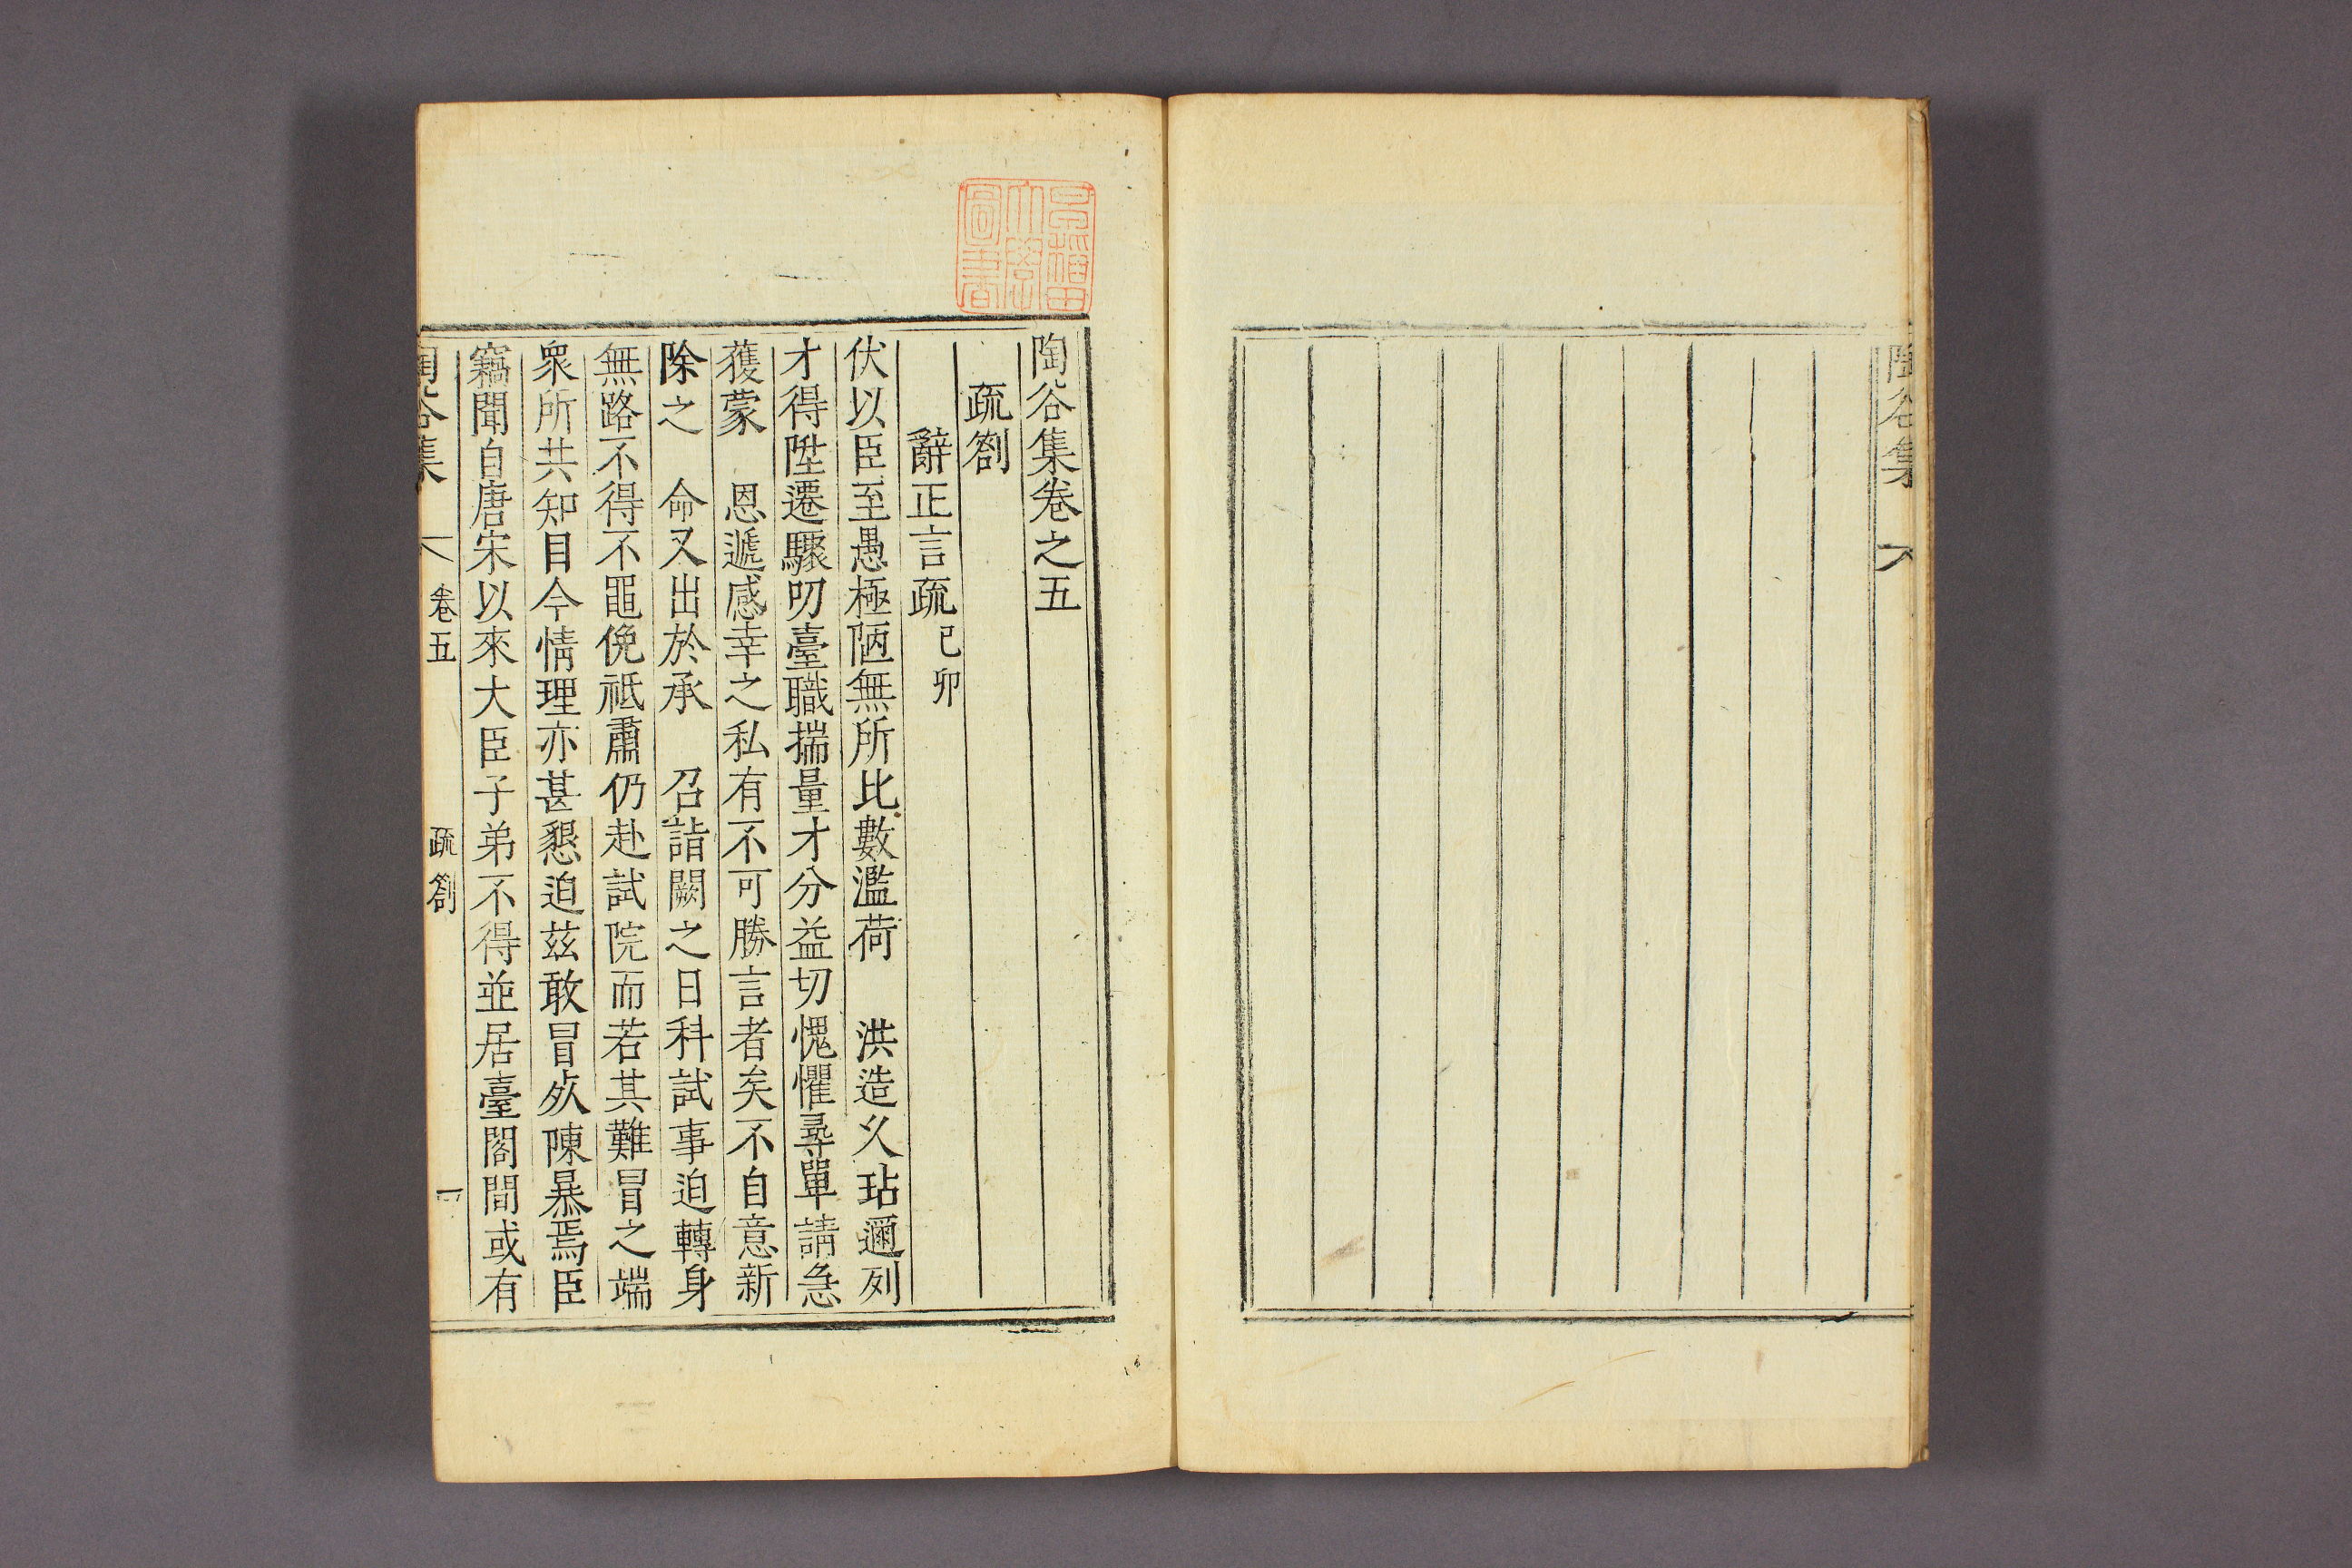 陶谷集
陶谷集卷之五
疏劄
辭正言疏己卯
伏以臣至愚極陋無所比數濫荷 洪造久玷邇列
才得陞遷驟叨臺職揣量才分益切愧懼尋單請急
獲蒙 恩遞感幸之私有不可勝言者矣不自意新
除之 命又出於承 召詣闕之日科試事迫轉身
無路不得不黽俛祗肅仍赴試院而若其難冒之端
衆所共知目今情理亦甚懇迫玆敢冒死陳暴焉臣
竊聞自唐宋以來大臣子弟不得並居臺閣間或有
陶谷集 卷五 疏劄 一
早稲田大學圖書